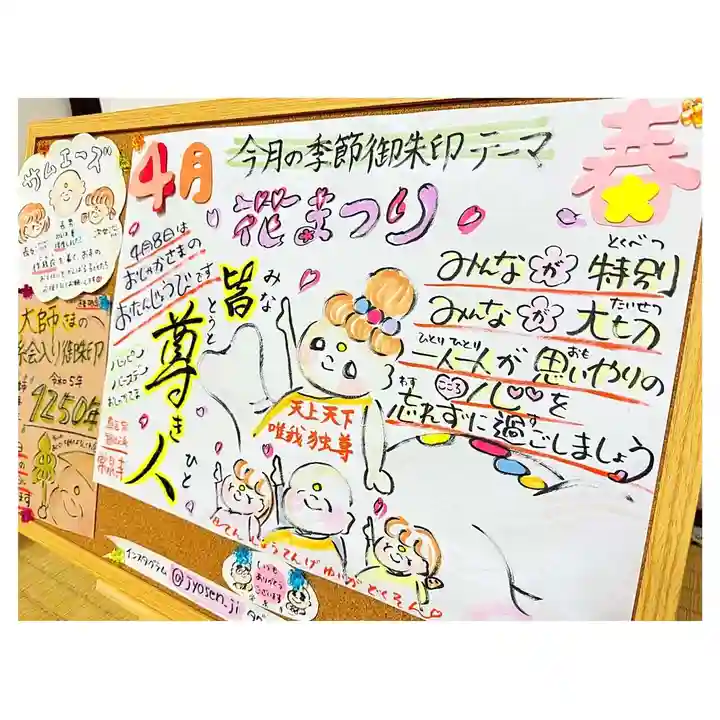 4月
今月の季節御朱印テーマ
春
花まつり
4月8日は
おしゃかさまの
おたんじょうびです
皆 みな
尊き人
とうと
ひと
ハッピー
バースデー
おしゃかさま
とくべつ
みんなが特別
たいせつ
みんなが大切
ひとりひとり おも
一人一人が思いやりの
こころ
心を
わす す
忘れずに過ごしましょう
天上天下
唯我独尊
てんじょうてんげゆいがどくそん
サムエーズ
大師さまの
絵入り御朱印
令和5年
1250年
インスタグラム
@jyosen_ji
いつも
ありがとう
ございます